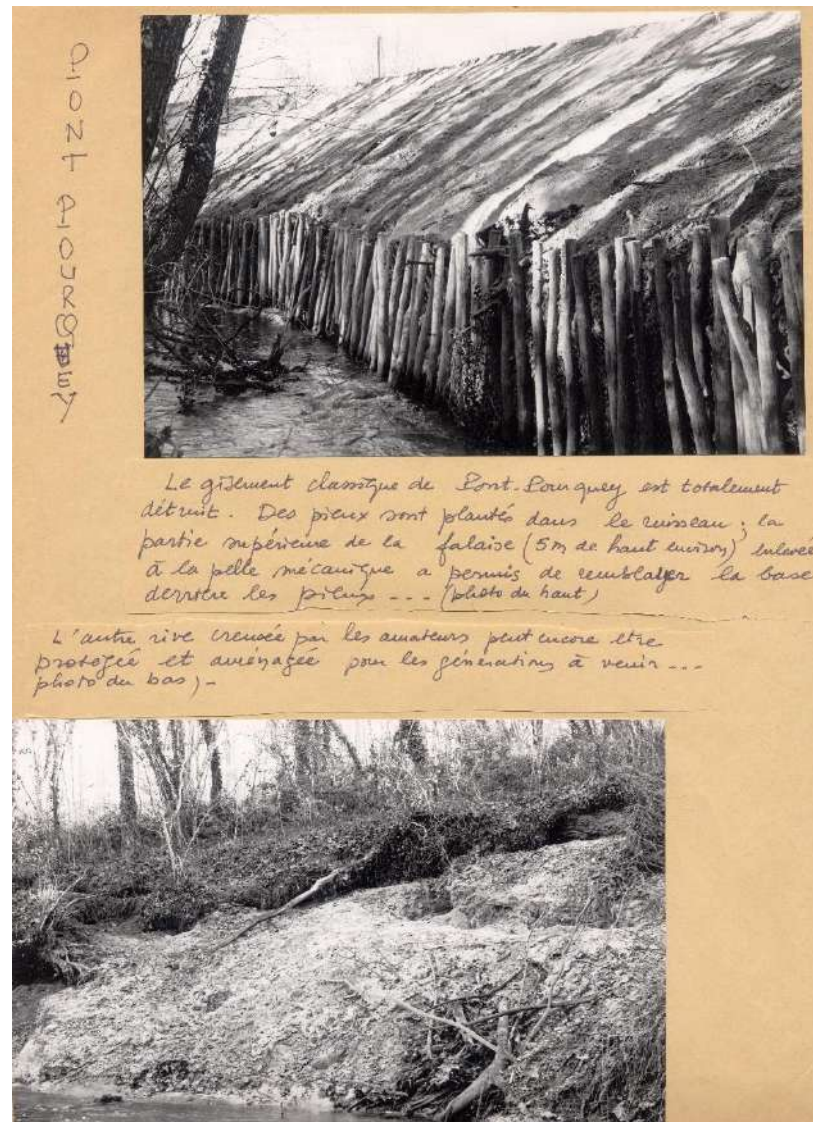 PONT POURQUEY
Le gisement classique de Pont-Pourquey est totalement
détruit. Des pieux sont plantés dans le ruisseau ; la
partie supérieure de la falaise (5m de haut environ) enlevée
à la pelle mécanique a permis de remblayer la base
derrière les pieux --- (photo du haut)
L'autre rive creusée par les amateurs peut encore être
protégée et aménagée pour les générations à venir ---
photo du bas) -